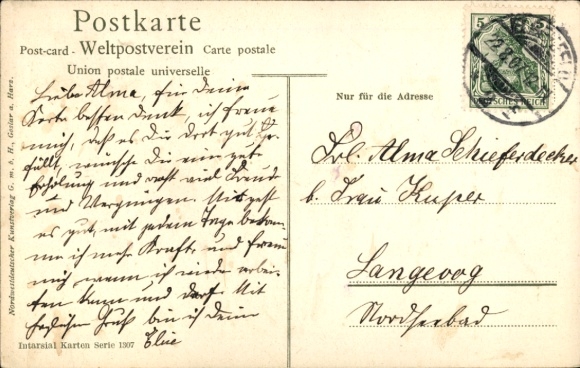 Postkarte
Post-card - Weltpostverein Carte postale
Union postale universelle
Nur für die Adresse
Liebe Alma, für Deine
Karte besten Dank, ich freue
mich, daß es Dir dort gut ge-
fällt, wünsche Dir ein gute
Erholung und recht viel Freude
und Vergnügen. Mir geht
es gut, mit jedem Tage bekom-
me ich mehr Kraft und freue
mich wenn ich wieder arbei-
ten kann und darf. Mit
herzlichem Gruß bin ich Deine
Frl. Alma Schieferdecker
b. Frau Kuper
Langeoog
Nordseebad
5
DEUTSCHES REICH
Nordwestdeutscher Kunstverlag G. m. b. H., Goslar a. Harz.
Intarsial Karten Serie 1307